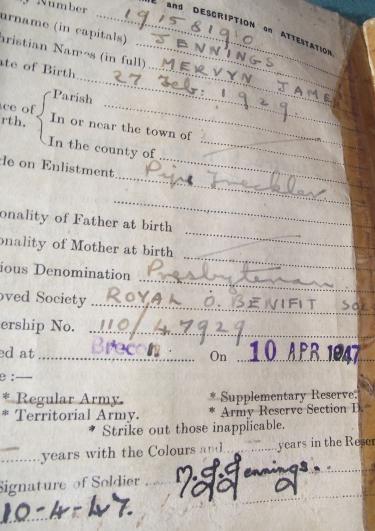 and DESCRIPTION on ATTESTATION.
y Number 19158190
urname (in capitals) JENNINGS
hristian Names (in full) MERVYN JAME
ate of Birth 27 Feb: 1929.
Parish
ace of
rth.
In or near the town of
In the county of
de on Enlistment Pipe
onality of Father at birth
onality of Mother at birth
ious Denomination Presbyterian
oved Society ROYAL O. BENIFIT SO
ership No. 110/47929
ed at Brecon On 10 APR 1947
e :—
* Regular Army. * Supplementary Reserve.
* Territorial Army. * Army Reserve Section D.
* Strike out those inapplicable.
years with the Colours and years in the Reser
Signature of Soldier M.J. Jennings.
10-4-47.